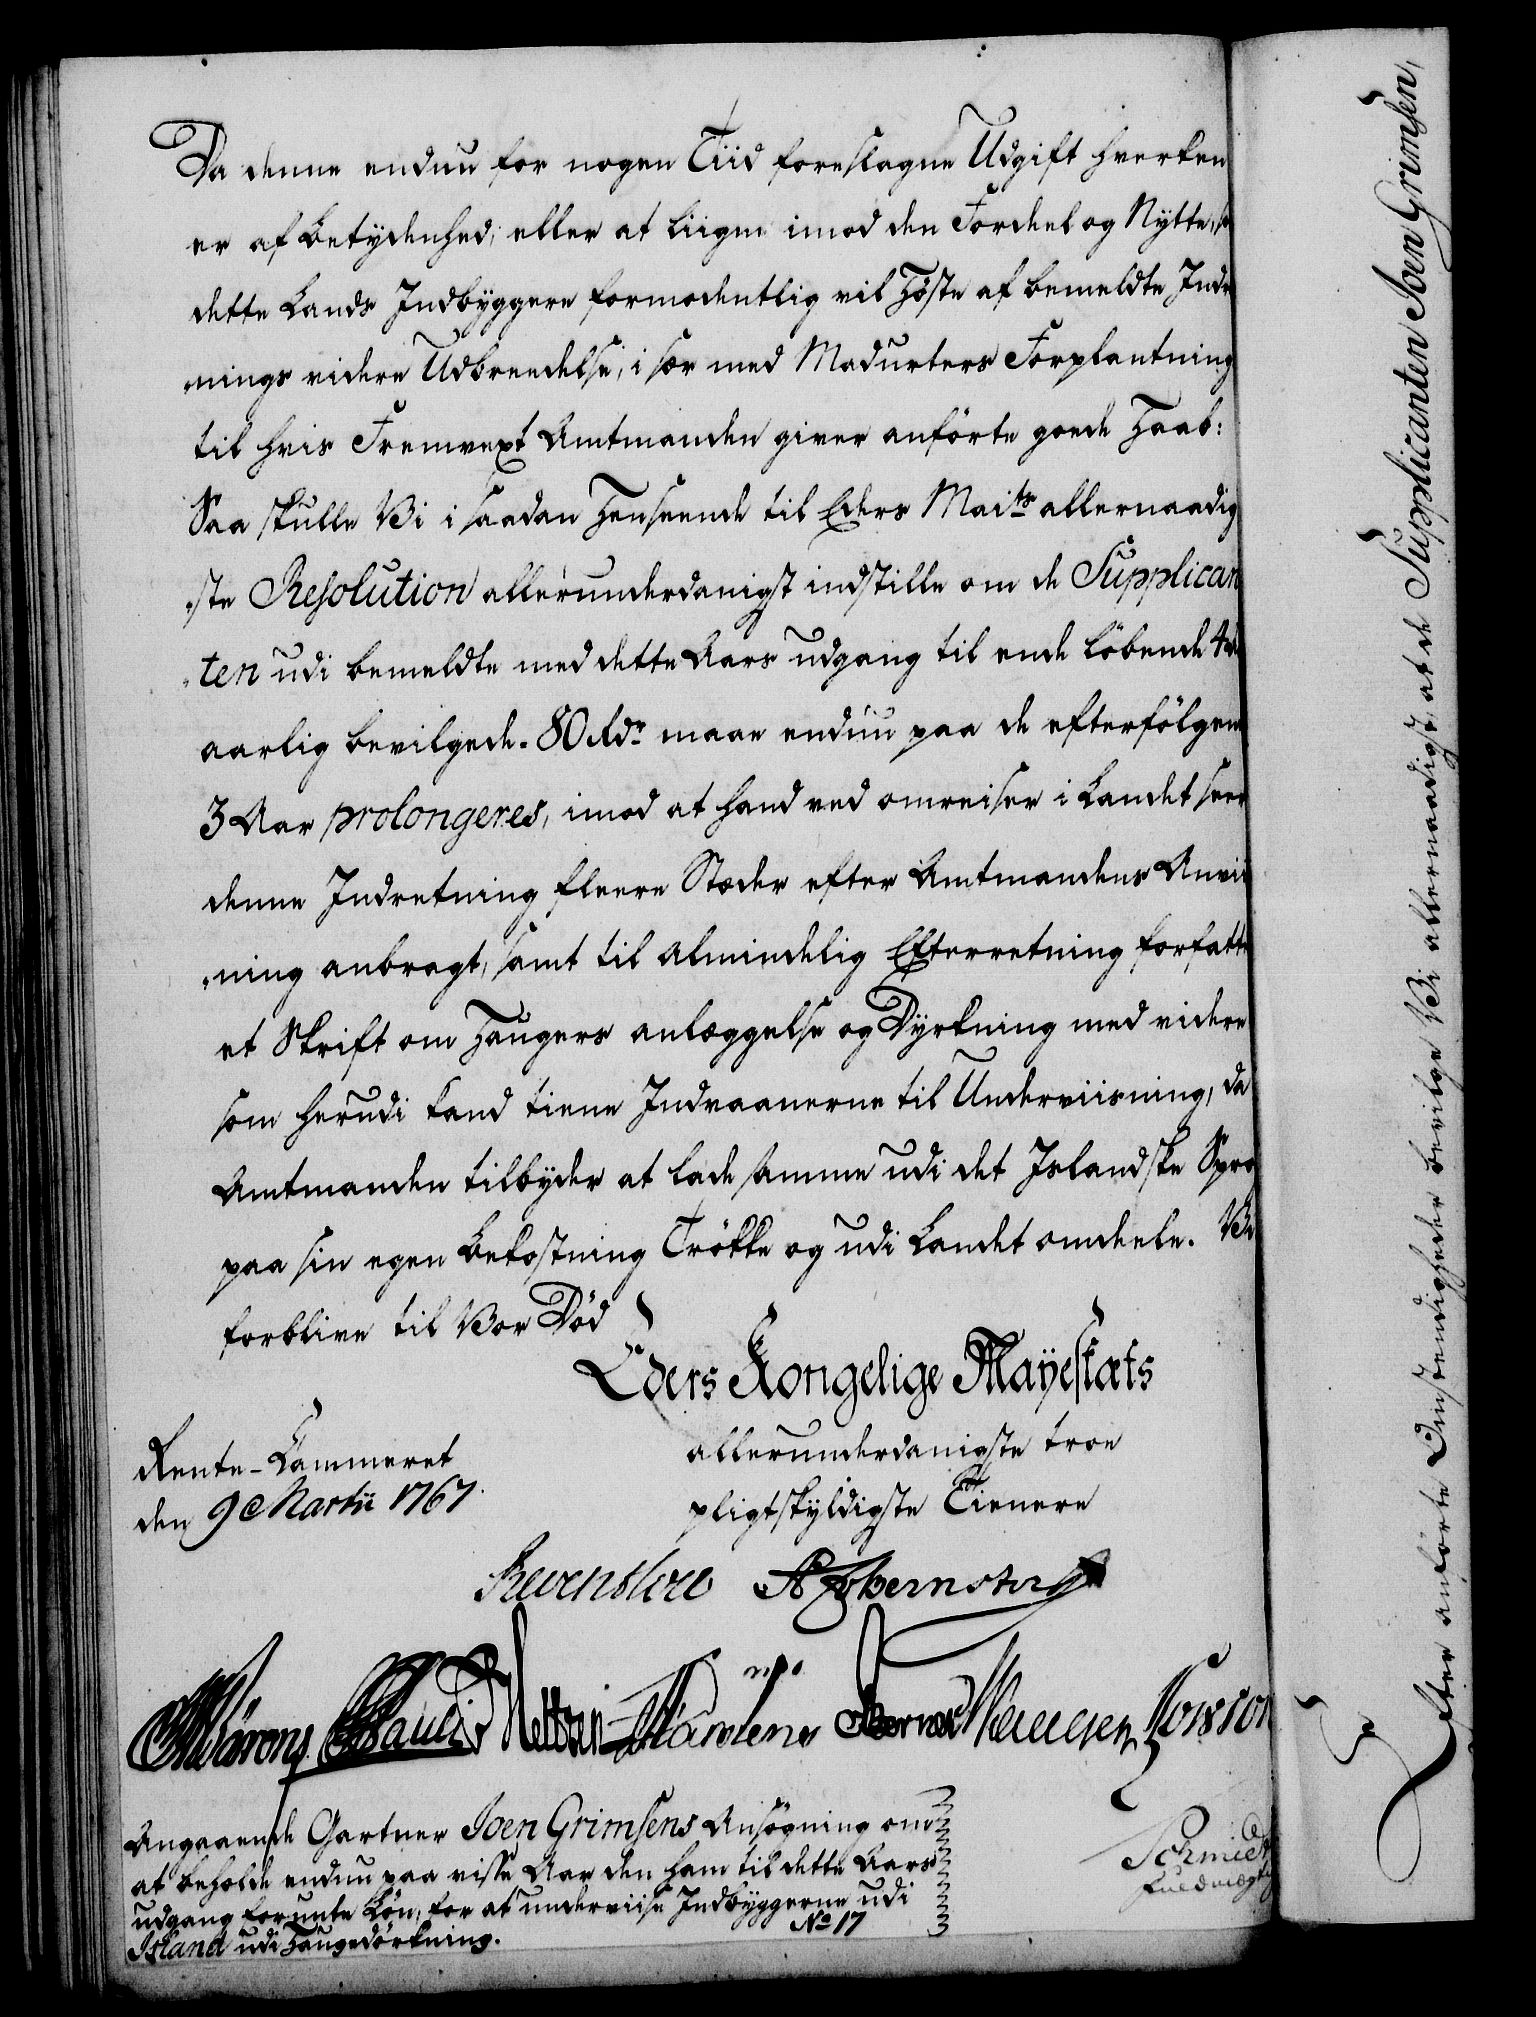 Da denne endnu for nogen Tiid foreslagne Udgift hverken
er af Betydenhed, eller at liigne imod den Fordeel og Nytte,
dette Lands Indbyggere formodentlig vil Høste af bemeldte Indr
nings videre Udbreedelse, i sær med Madurters Forplantning
til hvis Fremvext Amtmanden giver anførte goede Haab:
Saa skulle Vi i saadan Henseende til Eders Maits allernaadig
ste Resolution allerunderdanigst indstille om de Supplican
ten udi bemeldte med dette Aars udgang til ende løbende
aarlig bevilgede 80 Rdr maae endnu paa de efterfølgen
3 Aar prolongeres, imod at hand ved omreiser i Landet seer
denne Indretning fleere Stæder efter Amtmandens Anvii
ning anbragt, samt til almindelig Efterretning forfatte
et Skrift om Haugers anlæggelse og Dyrkning med videre
som herudi kand tiene Indvaanerne til Underviisning, da
Amtmanden tilbyder at lade samme udi det Islandske Spro
paa sin egen Bekostning Trøkke og udi Landet omdeele. Vi
forblive til Vor Død
Eders Kongelige Mayestæts
Rente-Cammeret
den 9 Martii 1767.
allerunderdanigste troe
pligtskyldigste Tienere
Angaaende Gartner Joen Grimsens Ansøgning om
at beholde endnu paa visse Aar den ham til dette Aars
udgang forunte Løn, for at underviise Indbyggerne udi
Island udi Haugedørkning.
No 17
Schmidt
fuldmægtig
Efter anførte Omstændigheder bevilge Vi allernaadigst, at de Supplicanten Joen Grimsen,